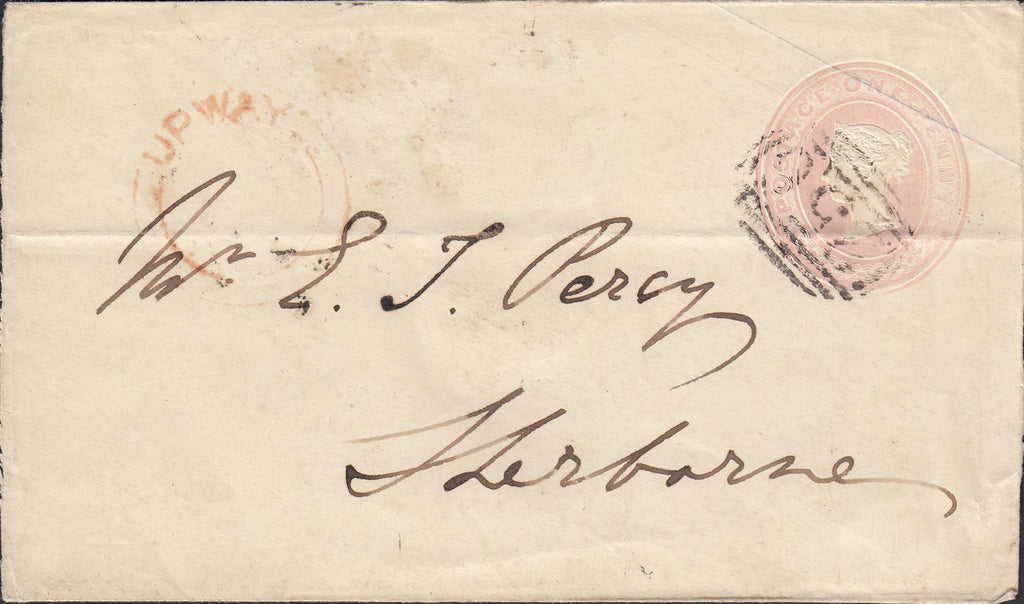 UPWAY
POSTAGE ONE PENNY
Mr E. T. Percy
Sherborne